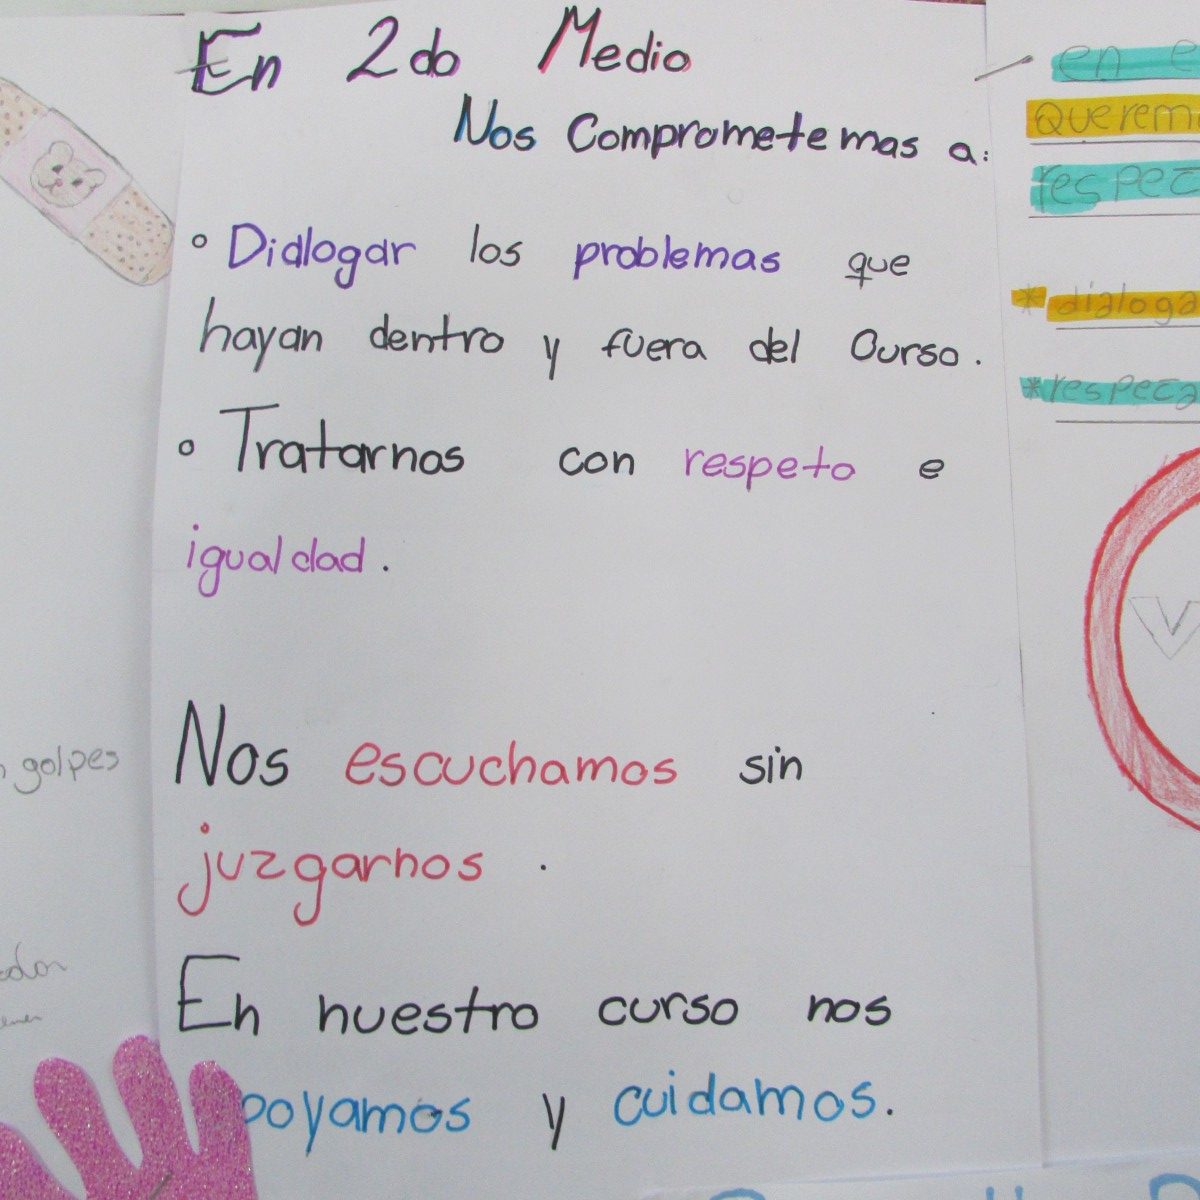 En 2do Medio
Nos Comprometemas a:
° Dialogar los problemas que
hayan dentro y fuera del Curso.
° Tratarnos con respeto e
igualdad.
Nos escuchamos sin
juzgarnos .
En nuestro curso nos
poyamos y cuidamos.
golpes
en e
Querem
respec
* dialoga
* respeta
V